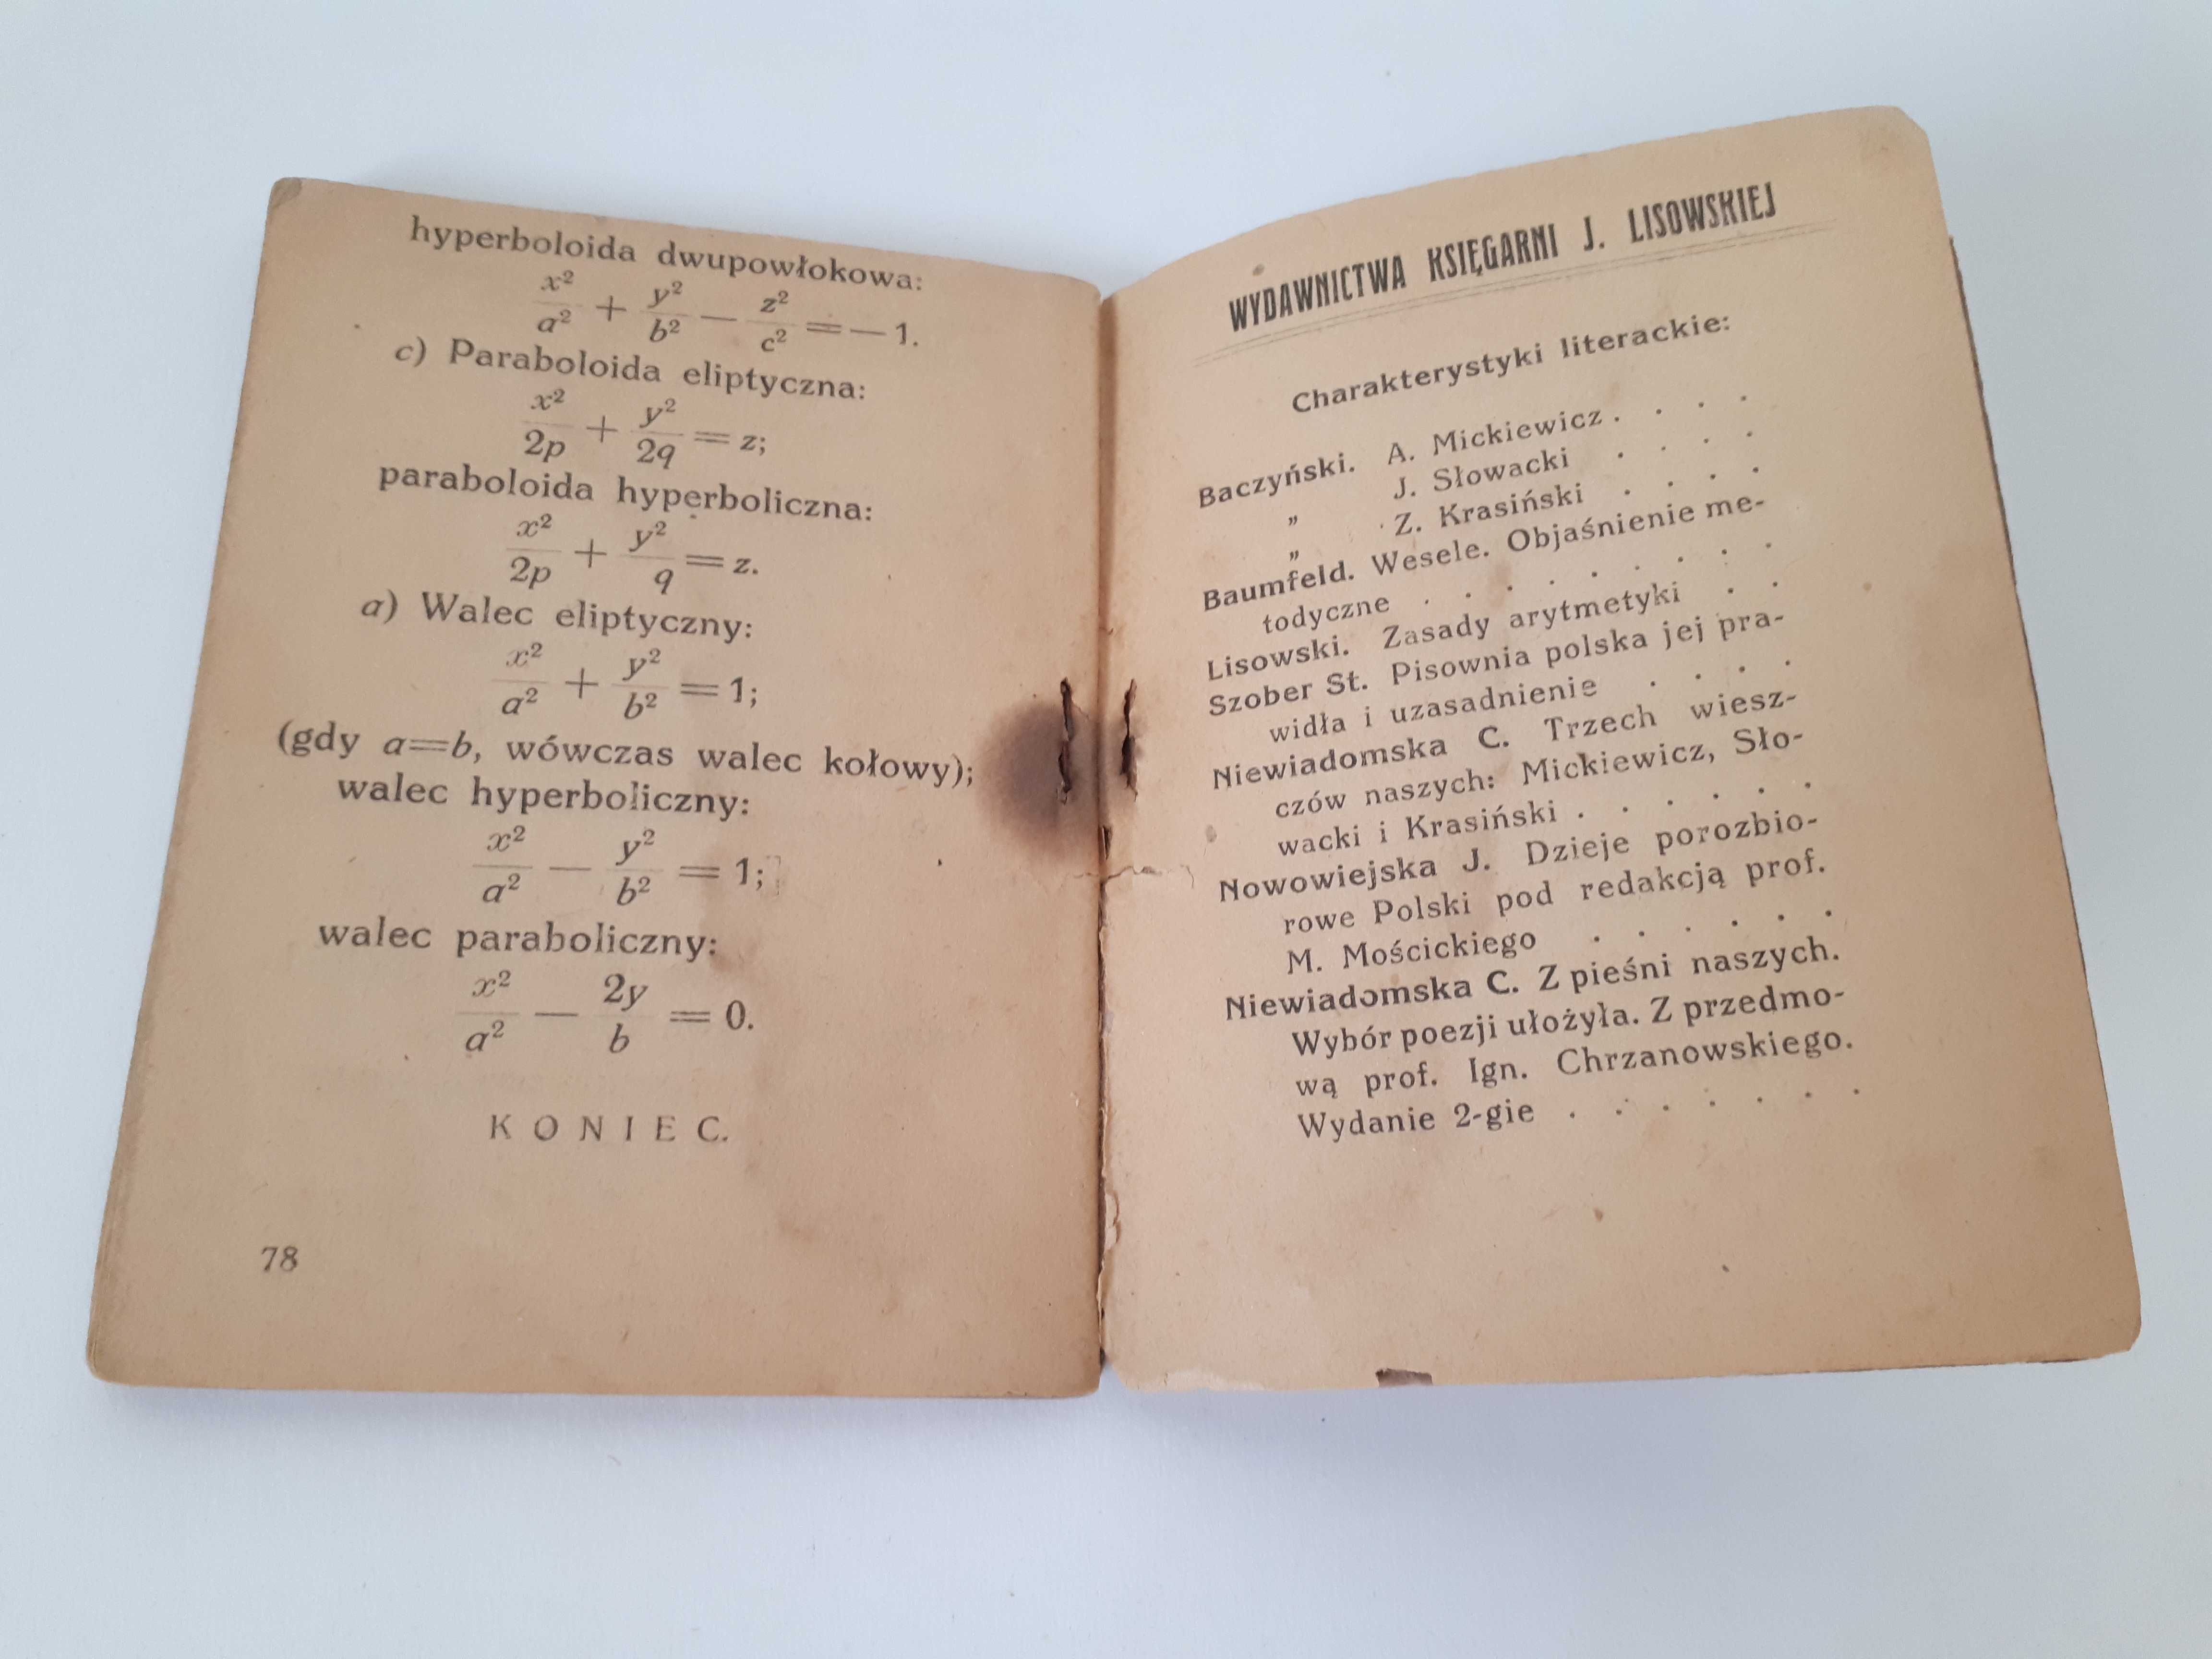 hyperboloida dwupowłokowa:
x²/a² + y²/b² — z²/c² = — 1.
c) Paraboloida eliptyczna:
x²/2p + y²/2q = z;
paraboloida hyperboliczna:
x²/2p + y²/q = z.
a) Walec eliptyczny:
x²/a² + y²/b² = 1;
(gdy a=b, wówczas walec kołowy);
walec hyperboliczny:
x²/a² — y²/b² = 1;
walec paraboliczny:
x²/a² — 2y/b = 0.
KONIEC.
78
WYDAWNICTWA KSIĘGARNI J. LISOWSKIEJ
Charakterystyki literackie:
Baczyński. A. Mickiewicz . . . .
„ J. Słowacki . . . .
„ Z. Krasiński . . . .
Baumfeld. Wesele. Objaśnienie me-
todyczne . . . . . . . . .
Lisowski. Zasady arytmetyki . .
Szober St. Pisownia polska jej pra-
widła i uzasadnienie . . . .
Niewiadomska C. Trzech wiesz-
czów naszych: Mickiewicz, Sło-
wacki i Krasiński . . . . . .
Nowowiejska J. Dzieje porozbio-
rowe Polski pod redakcją prof.
M. Mościckiego . . . . . .
Niewiadomska C. Z pieśni naszych.
Wybór poezji ułożyła. Z przedmo-
wą prof. Ign. Chrzanowskiego.
Wydanie 2-gie . . . . . . .